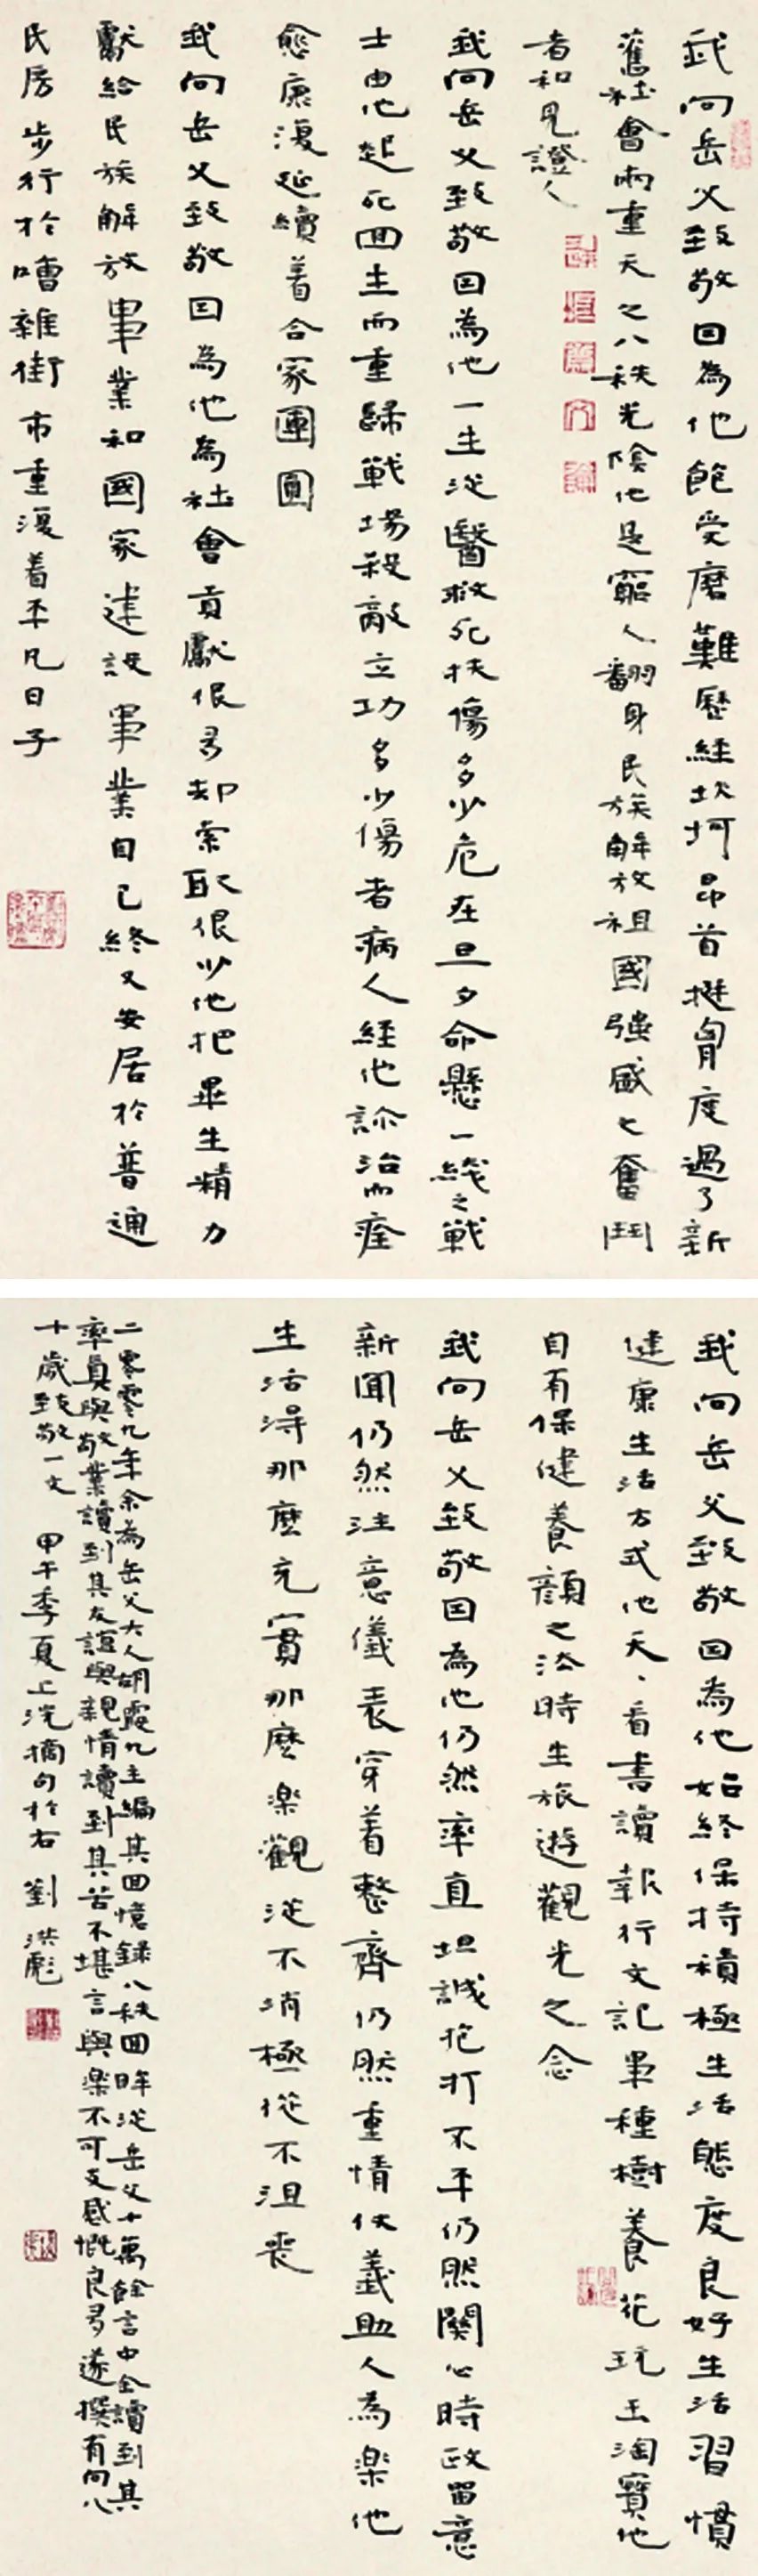 我向岳父致敬因為他飽受磨難歷經坎坷昂首挺胸度過了新
舊社會兩重天之八秩光陰他是窮人翻身民族解放祖國強盛之奮鬥
者和見證人
我向岳父致敬因為他一生從醫救死扶傷多少危在旦夕命懸一綫之戰
士由他起死回生而重歸戰場殺敵立功多少傷者病人經他診治而痊
愈康復延續着合家團圓
我向岳父致敬因為他為社會貢獻很多却索取很少他把畢生精力
獻給民族解放事業和國家建設事業自己終又安居於普通
民房步行於嘈雜街市重複着平凡日子
我向岳父致敬因為他始終保持積極生活態度良好生活習慣
健康生活方式他天、看書讀報行文記事種樹養花玩玉淘寶他
自有保健養顏之法時生旅遊觀光之念
我向岳父致敬因為他仍然率直坦誠抱打不平仍然關心時政留意
新聞仍然注意儀表穿着整齊仍然重情仗義助人為樂他
生活得那麼充實那麼樂觀從不消極從不沮喪
二零零九年余為岳父大人胡霞九主編其回憶錄八秩回眸從岳父十萬餘言中全讀到其
率真與敬業讀到其友誼與親情讀到其苦不堪言與樂不可支感慨良多遂撰有向八
十歲致敬一文 甲午季夏上浣摘句於右 劉洪彪